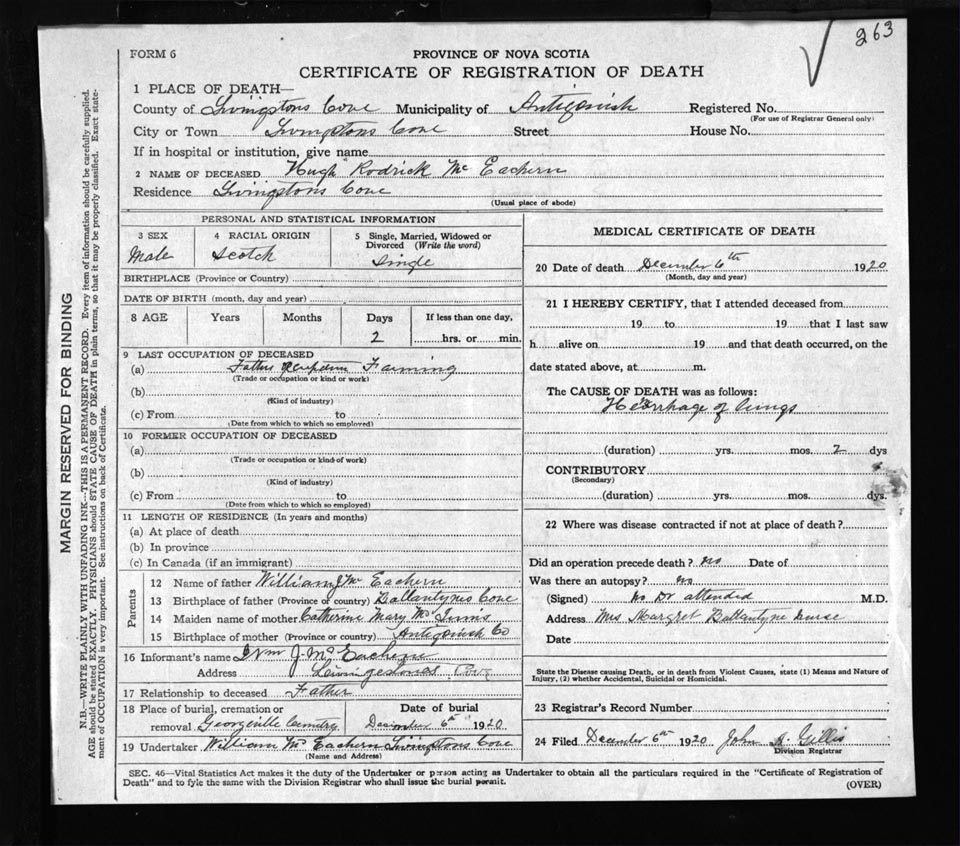 263
FORM 6
PROVINCE OF NOVA SCOTIA
CERTIFICATE OF REGISTRATION OF DEATH
1 PLACE OF DEATH—
County of Livingstons Cove Municipality of Antigonish Registered No.
(For use of Registrar General only)
City or Town Livingstons Cove Street House No.
If in hospital or institution, give name
2 NAME OF DECEASED Hugh Rodrick Mc Eachern
Residence Livingstons Cove
(Usual place of abode)
PERSONAL AND STATISTICAL INFORMATION
3 SEX 4 RACIAL ORIGIN 5 Single, Married, Widowed or Divorced (Write the word)
Male Scotch Single
BIRTHPLACE (Province or Country)
DATE OF BIRTH (month, day and year)
8 AGE Years Months Days If less than one day,
2 hrs. or min.
9 LAST OCCUPATION OF DECEASED
(a) Fathers occupation Farming
(Trade or occupation or kind or work)
(b)
(Kind of industry)
(c) From to
(Date from which to which so employed)
10 FORMER OCCUPATION OF DECEASED
(a)
(Trade or occupation or kind of work)
(b)
(Kind of industry)
(c) From to
(Date from which to which so employed)
11 LENGTH OF RESIDENCE (In years and months)
(a) At place of death
(b) In province
(c) In Canada (if an immigrant)
Parents
12 Name of father William J Mc Eachern
13 Birthplace of father (Province or country) Ballantynes Cove
14 Maiden name of mother Catherine Mary Mc Innis
15 Birthplace of mother (Province or country) Antigonish Co
16 Informant's name Wm J. Mc Eachern
Address Livingstones Cove
17 Relationship to deceased Father
18 Place of burial, cremation or Date of burial
removal Georgeville Cemetry December 6th 1920
19 Undertaker William Mc Eachern Livingstons Cove
(Name and Address)
MEDICAL CERTIFICATE OF DEATH
20 Date of death December 6th 1920
(Month, day and year)
21 I HEREBY CERTIFY, that I attended deceased from
19 to 19 that I last saw
h alive on 19 and that death occurred, on the
date stated above, at m.
The CAUSE OF DEATH was as follows:
of lungs
(duration) yrs. mos. 2 dys
CONTRIBUTORY
(Secondary)
(duration) yrs. mos. dys.
22 Where was disease contracted if not at place of death?
Did an operation precede death? no Date of
Was there an autopsy? no
(Signed) no Dr attended M.D.
Address Mrs Margret Ballantyne nurse
Date
State the Disease causing Death, or in death from Violent Causes, state (1) Means and Nature of
Injury, (2) whether Accidental, Suicidal or Homicidal.
23 Registrar's Record Number
24 Filed December 6th 1920 John Gillis
Division Registrar
SEC. 46—Vital Statistics Act makes it the duty of the Undertaker or person acting as Undertaker to obtain all the particulars required in the "Certificate of Registration of
Death" and to fyle the same with the Division Registrar who shall issue the burial permit.
(OVER)
MARGIN RESERVED FOR BINDING
N.B.—WRITE PLAINLY WITH UNFADING INK—THIS IS A PERMANENT RECORD. Every item of information should be carefully supplied.
AGE should be stated EXACTLY. PHYSICIANS should STATE CAUSE OF DEATH in plain terms, so that it may be properly classified. Exact state-
ment of OCCUPATION is very important. See instructions on back of Certificate.